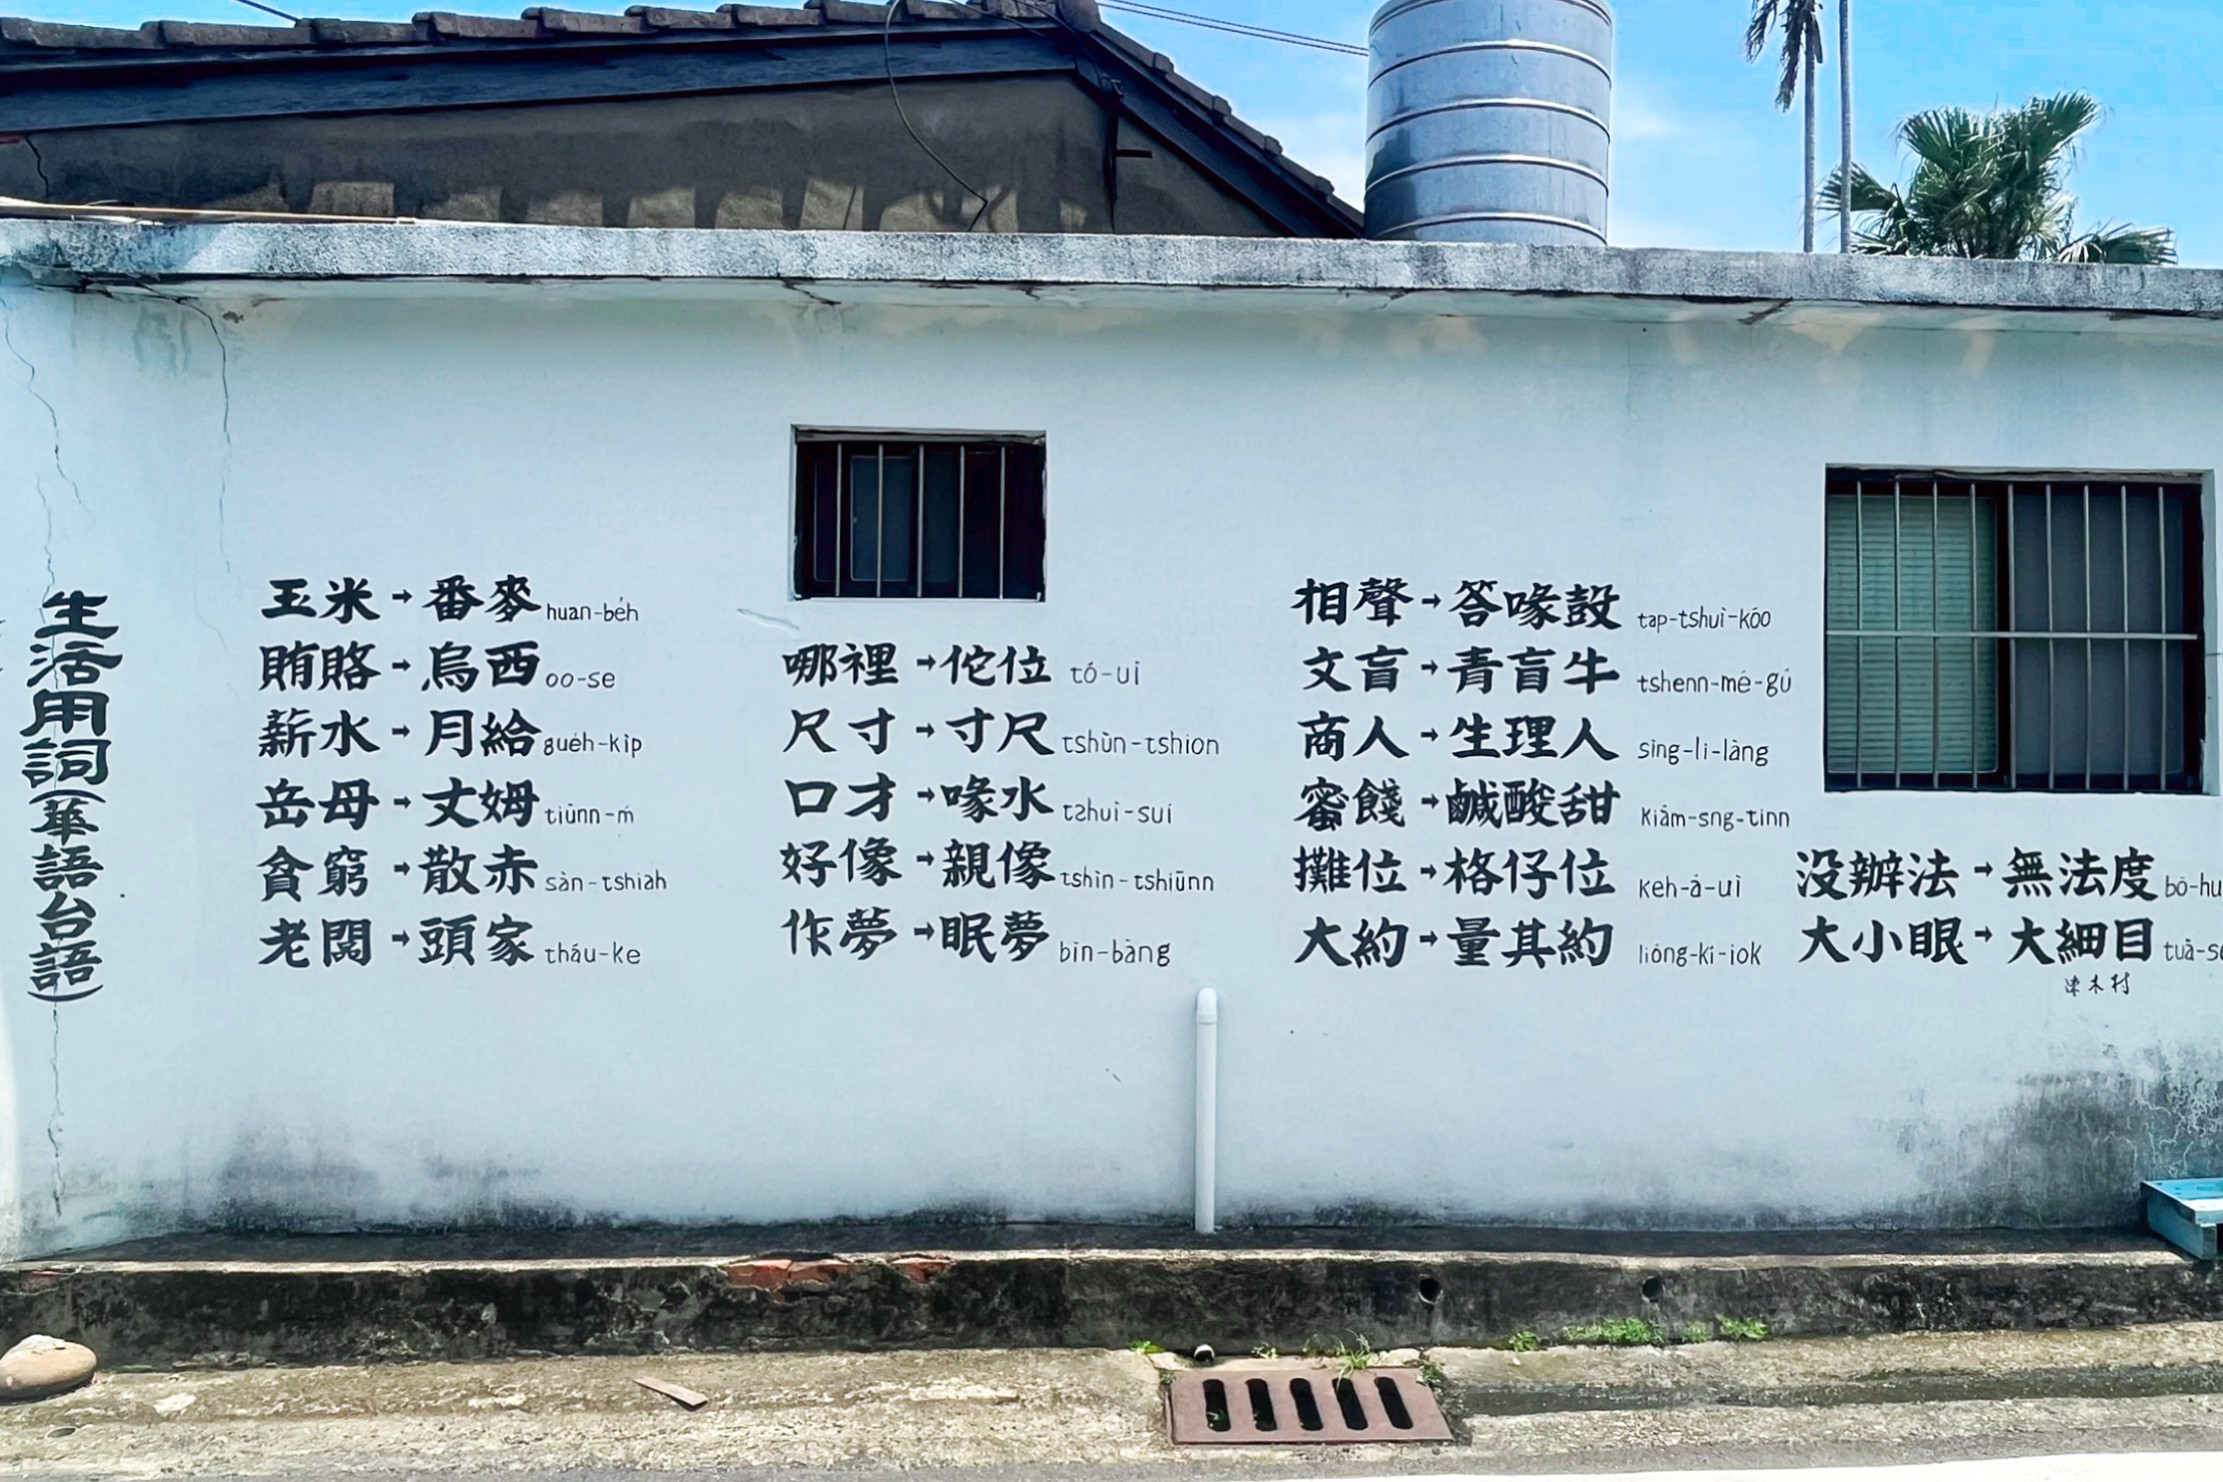 生活用詞(華語台語)
玉米→番麥 huan-be̍h
賄賂→烏西 oo-se
薪水→月給 gue̍h-kìp
岳母→丈姆 tiūnn-ḿ
貪窮→散赤 sàn-tshiah
老闆→頭家 thâu-ke
哪裡→佗位 tó-uī
尺寸→寸尺 tshùn-tshioh
口才→喙水 tshuì-suí
好像→親像 tshin-tshiūnn
作夢→眠夢 bîn-bāng
相聲→答喙鼓 tap-tshuì-kóo
文盲→青盲牛 tshenn-mê-gû
商人→生理人 sing-lí-lâng
蜜餞→鹹酸甜 kiâm-sng-tinn
攤位→格仔位 keh-á-uī
大約→量其約 liōng-kî-iok
沒辦法→無法度 bô-hu
大小眼→大細目 tuā-se